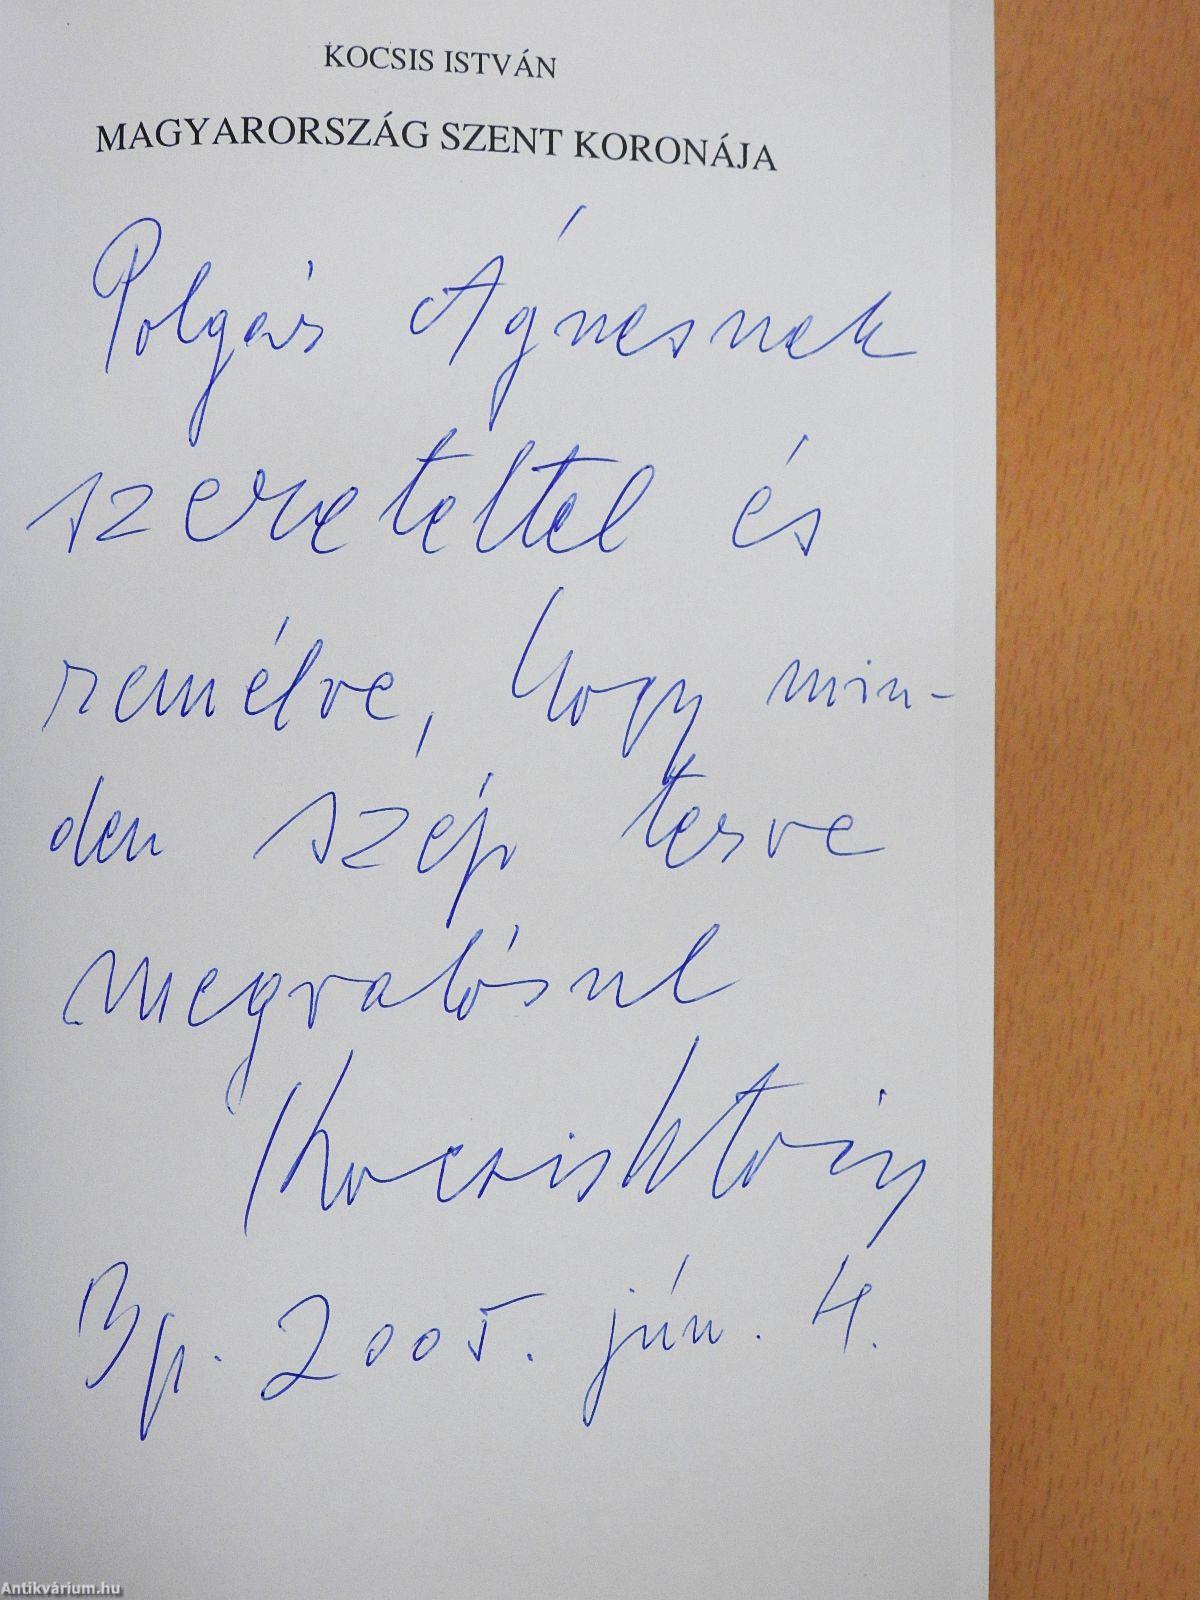 KOCSIS ISTVÁN
MAGYARORSZÁG SZENT KORONÁJA
Polgár Ágnesnek
szeretettel és
remélve, hogy min-
den szép terve
megvalósul
Kocsis István
Bp. 2005. jún. 4.
Antikvárium.hu